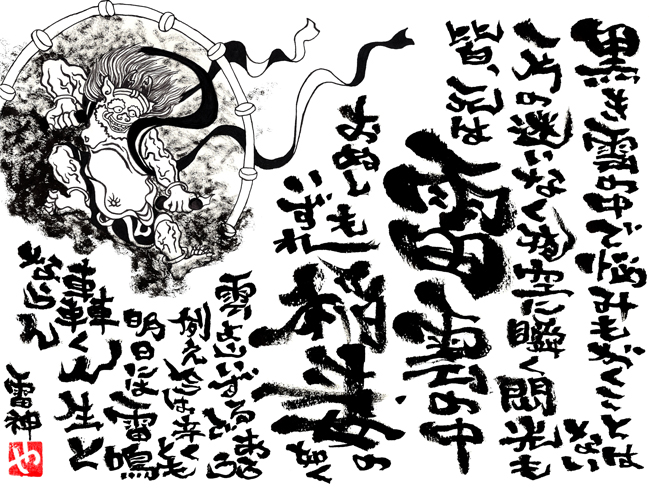 黒き雲の中で悩みもがくことは
ない
一片の迷いなく夜空に瞬く閃光も
皆、元は
雷雲の中
おぬしも
いずれ
稲妻の如く
雲よりいずるであろう
例え今は辛くとも
明日には雷鳴
轟く人生と
ならん
雷神
や